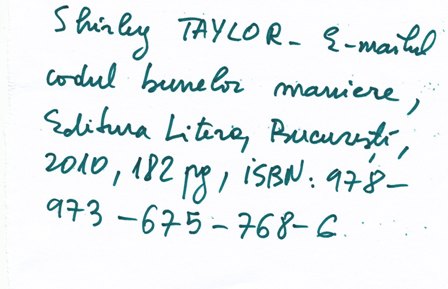 Shirley TAYLOR - E-mailul
codul bunelor maniere,
Editura Litera, București,
2010, 182 pg, ISBN: 978-
973-675-768-6